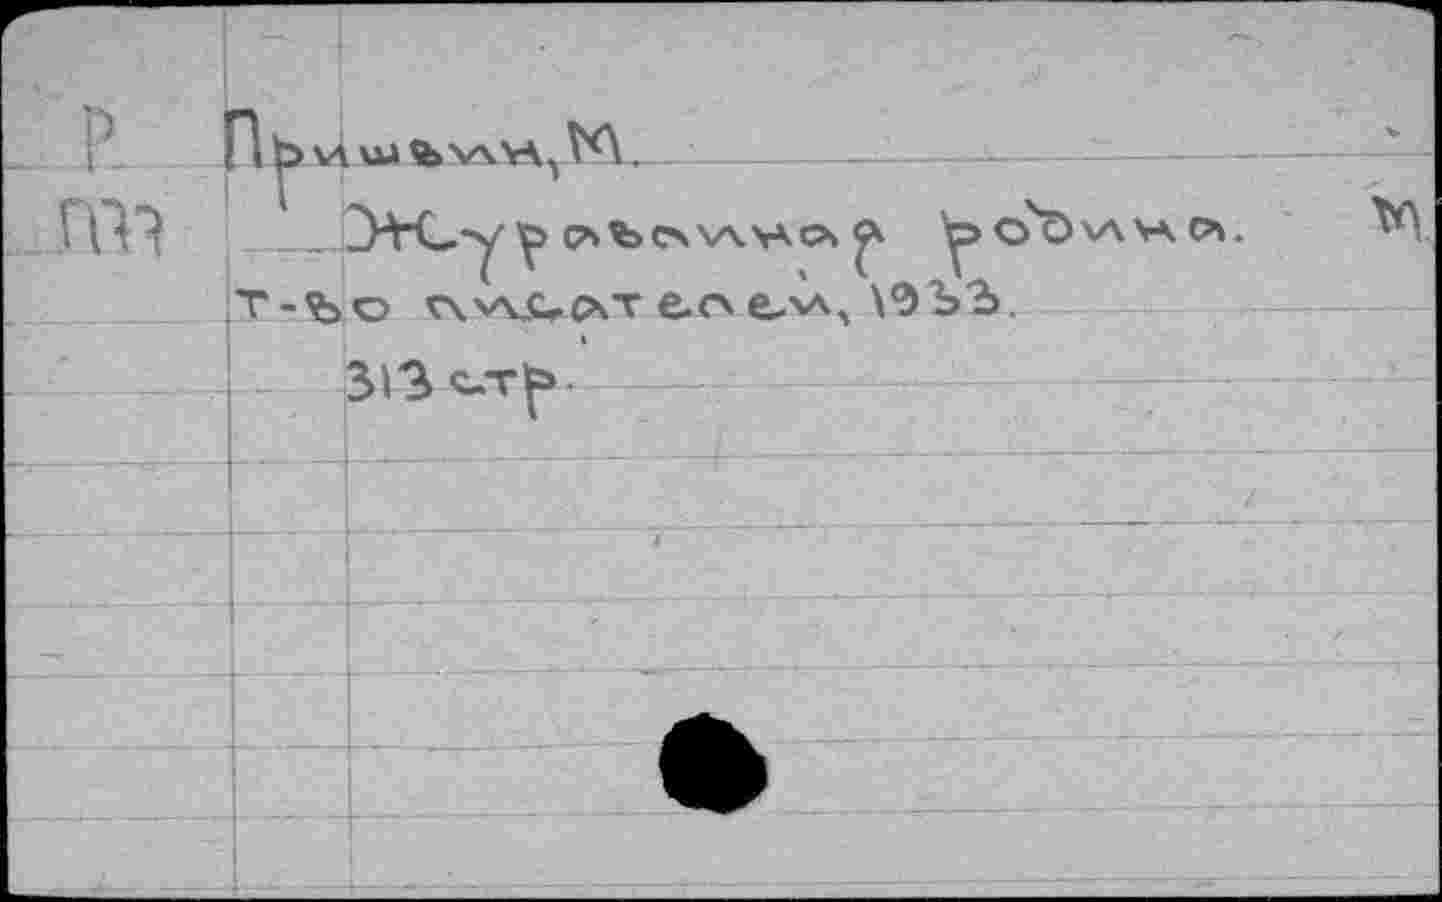 Р Пришвин, М.
П77 Журавлиная родина. М.
т-во писателей, 1933.
313 стр.